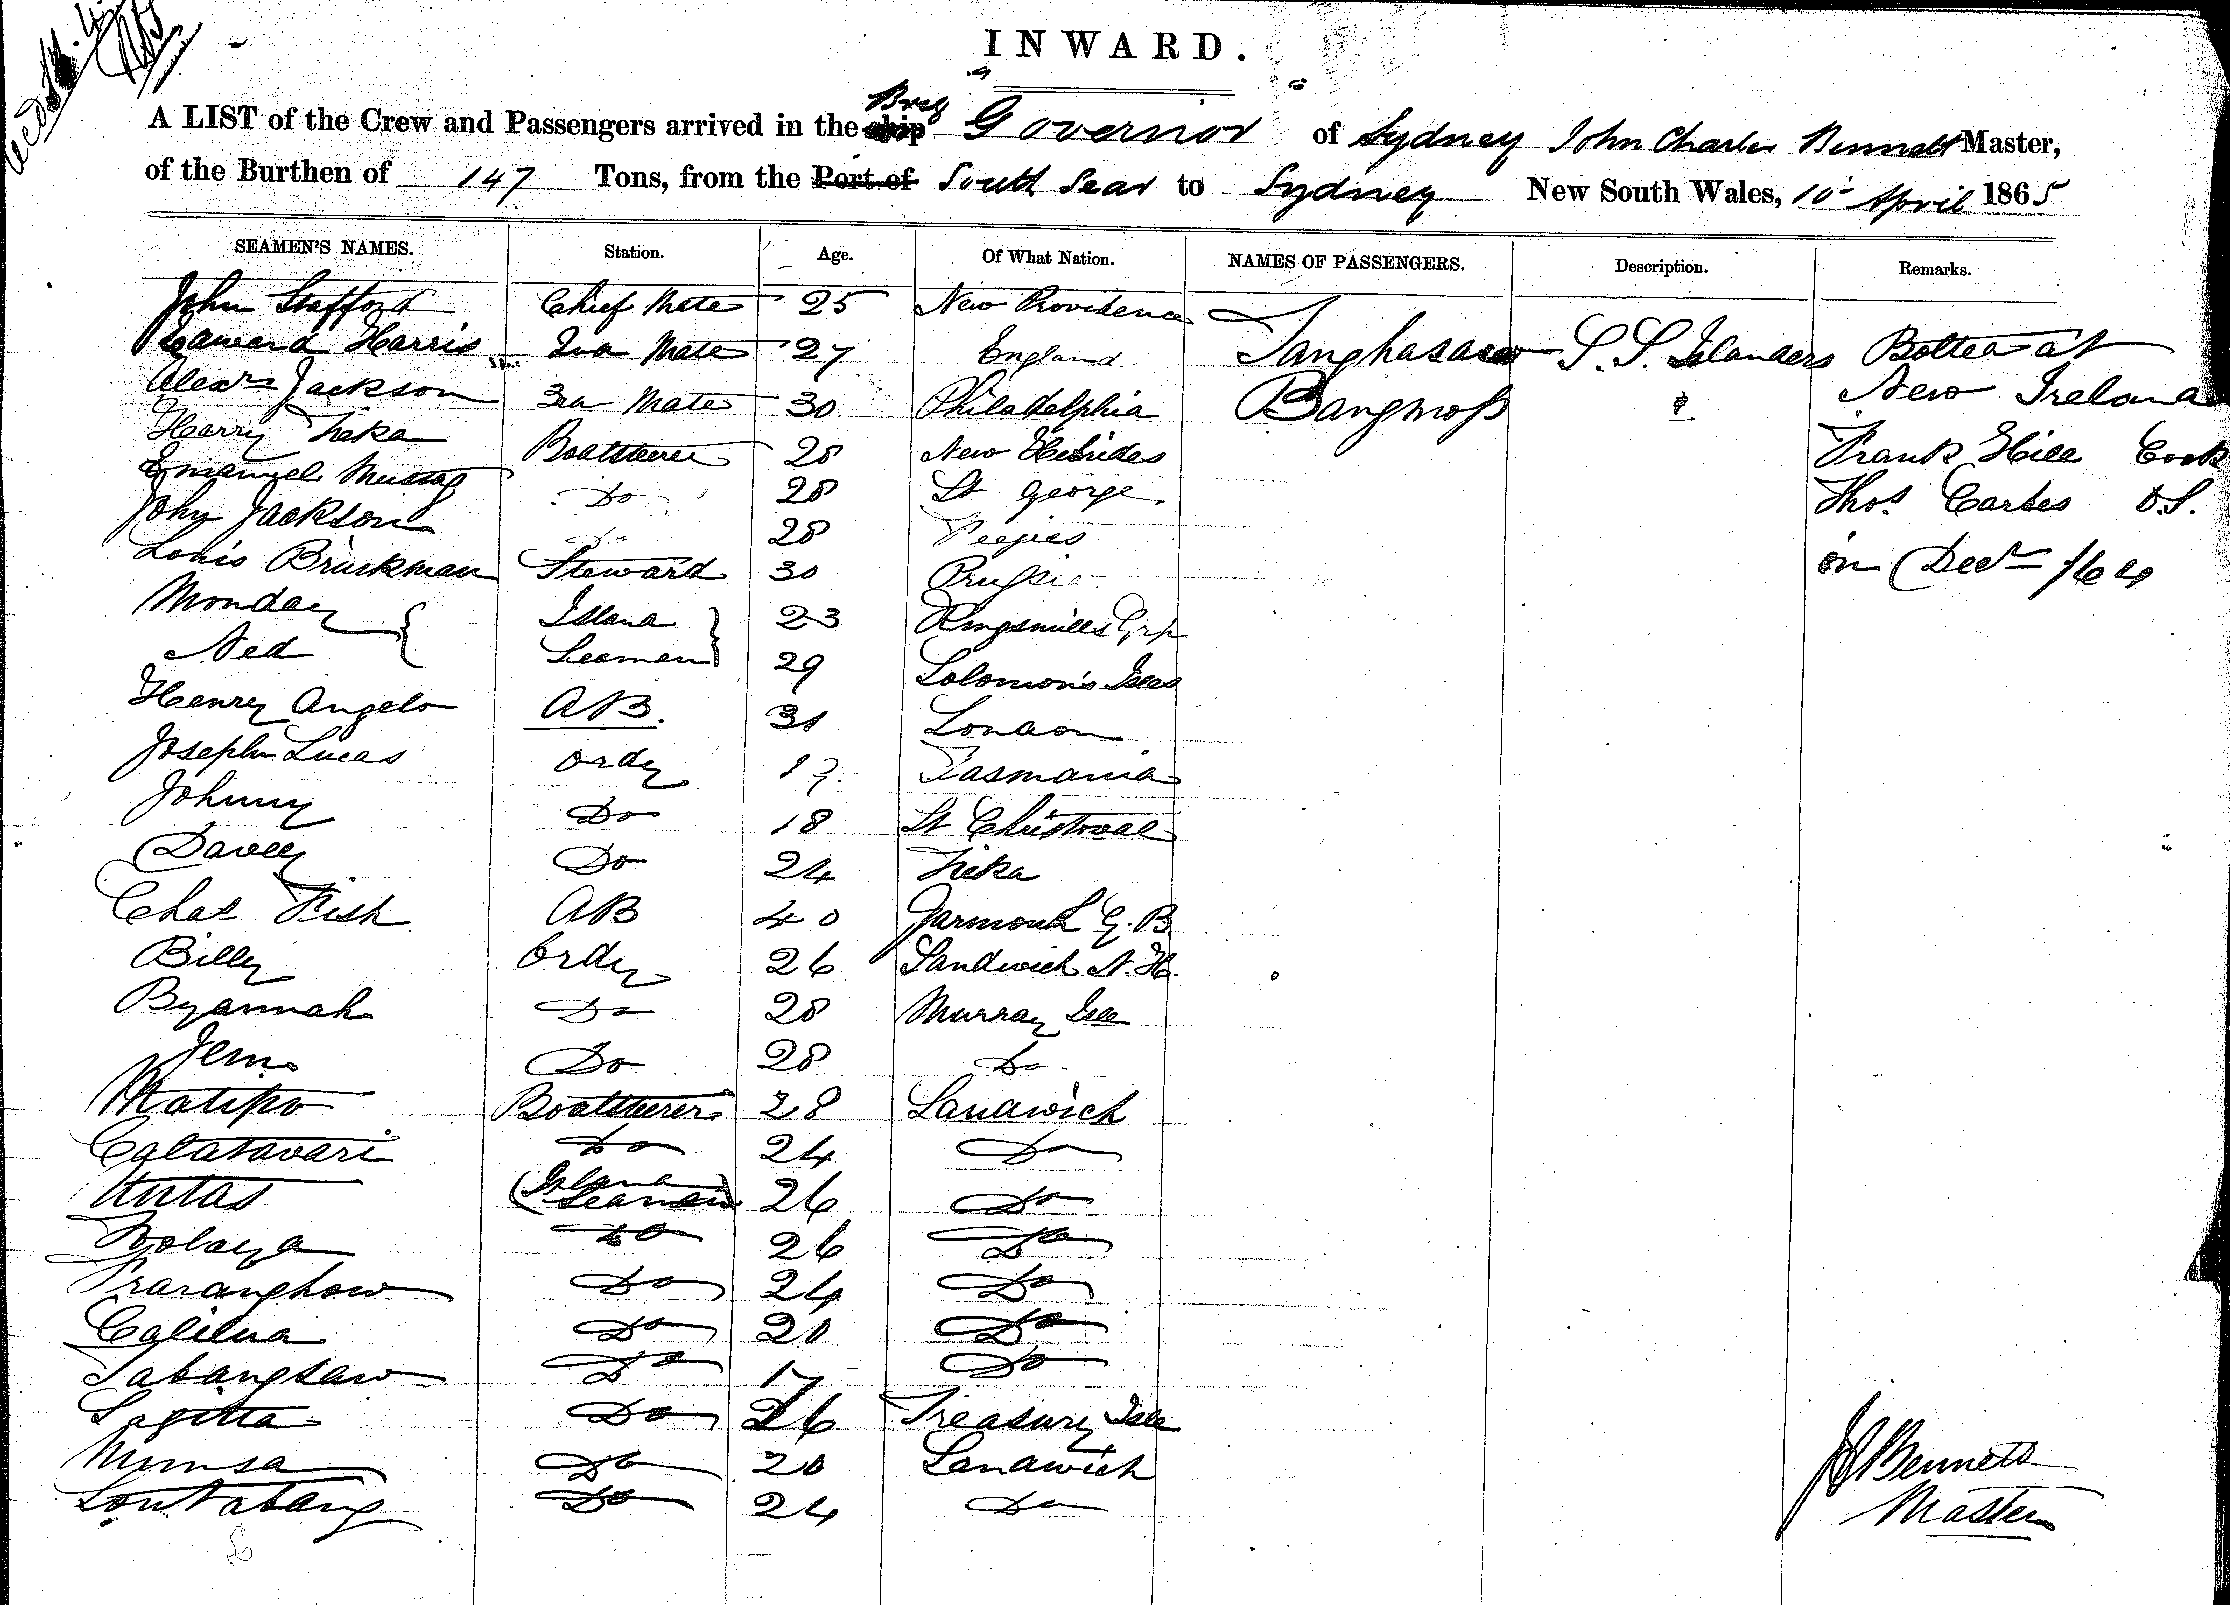 INWARD.
A LIST of the Crew and Passengers arrived in the ship Brig Governor of Sydney John Charles Bennett Master,
of the Burthen of 147 Tons, from the Port of South Seas to Sydney New South Wales, 10 April 1865
SEAMEN'S NAMES. Station. Age. Of What Nation. NAMES OF PASSENGERS. Description. Remarks.
John Stafford Chief Mate 25 New Providence
Edward Harris 2nd Mate 27 England Tanghasaw S.S. Islanders Bolted at
Alexr Jackson 3rd Mate 30 Philadelphia Bangmoss " New Ireland
Harry Tieka Boatsteerer 28 New Hebrides Frank Hill Cook
Emanuel Do 28 St George Thos Carbes O.S.
John Jackson Do 28 Feejies
Louis Bruckman Steward 30 Prussia on Decr /64
Monday Island 23 Kingsmills Grp
Ned Seamen 29 Solomon's Isles
Henry Angelo AB. 31 London
Joseph Lucas Ordy 17 Tasmania
Johnny Do 18 St Christoval
Davey Do 24 Tieka
Chas Fish AB 40 Yarmouth G.B.
Billy Ordy 26 Sandwich N.H.
Byannah Do 28 Murray Isle
Jem Do 28 Do
Matipo Boatsteerer 28 Sandwich
Calatavari Do 24 Do
Untas Island Seamen 26 Do
Bolaya Do 26 Do
Praranghow Do 24 Do
Calilua Do 20 Do
Tabangsaw Do 17 Do
Sagitta Do 26 Treasury Isle
Mumsa Do 20 Sandwich
Lontabang Do 24 Do
JC Bennett
Master